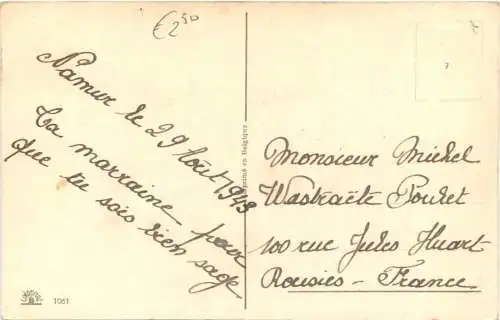 €250
Namur le 29 Août 1943
Ta marraine pour
que tu sois bien sage
Imprimé en Belgique
Monsieur Michel
Wastraëte Poulet
100 rue Jules Huart
Rousies - France
1061